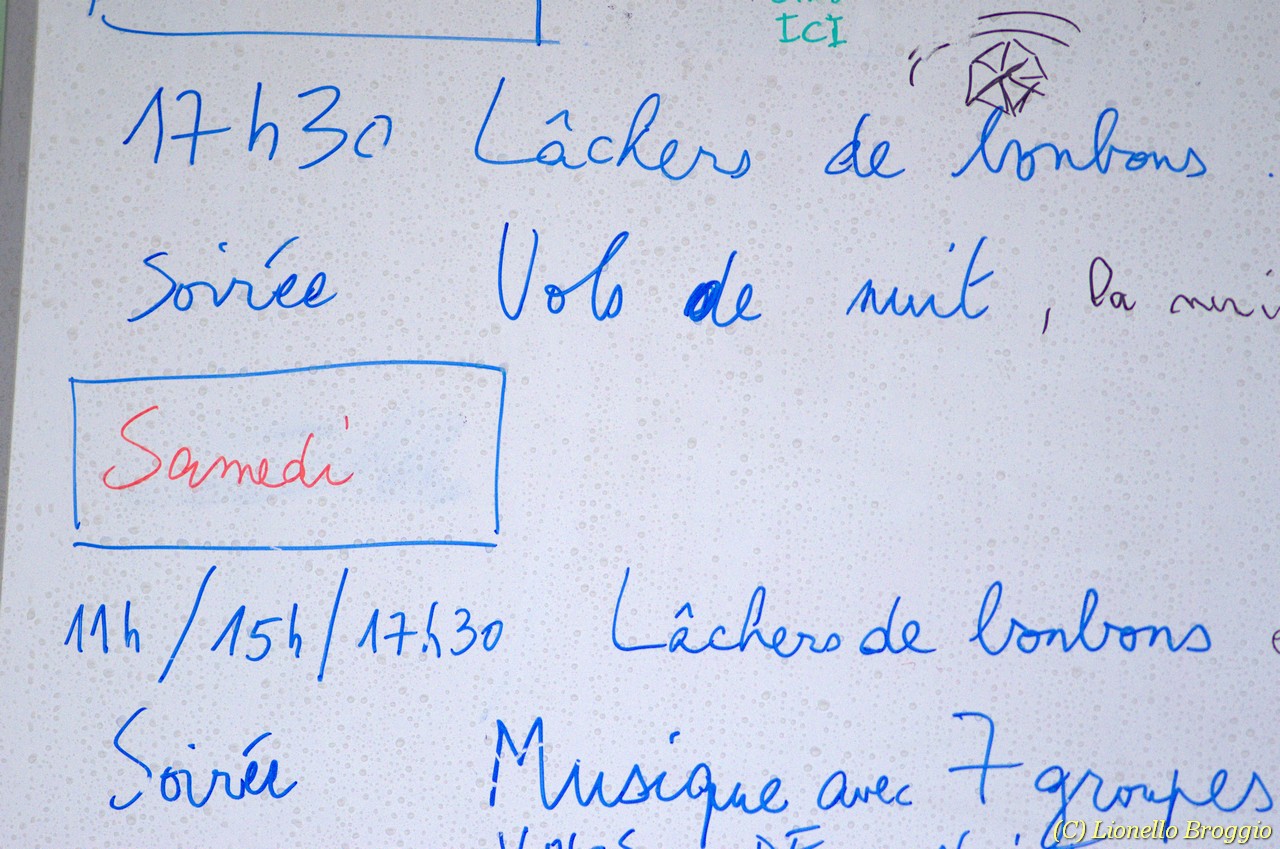 ICI
17h30 Lâchers de bonbons.
Soirée Vols de nuit, la
Samedi
11h / 15h / 17h30 Lâchers de bonbons
Soirée Musique avec 7 groupes
(C) Lionello Broggio